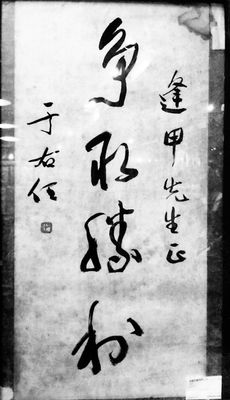 逢甲先生正
争取胜利
于右任